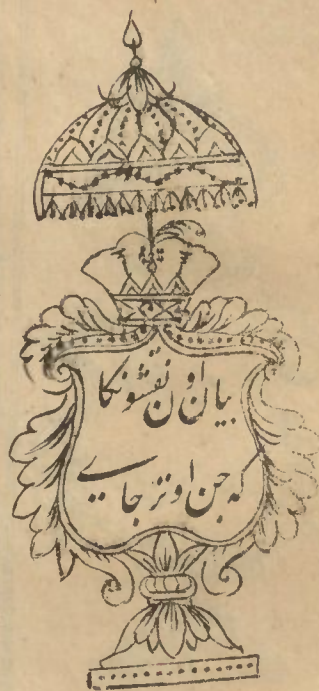 بیان اون نقشونکا
کہ جن اوتر جاے